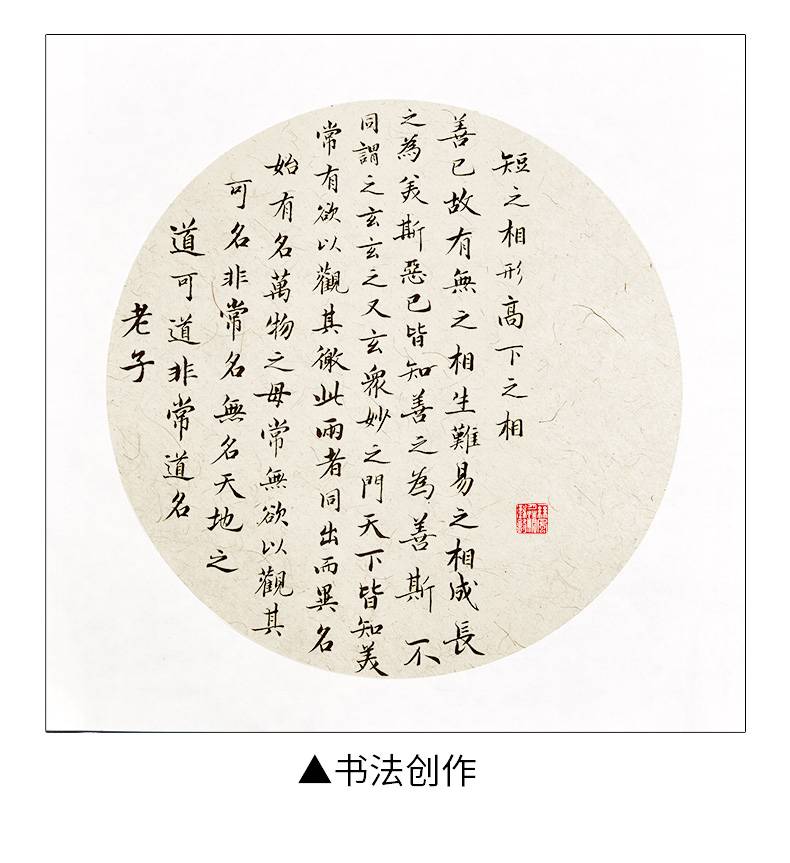 老子
道可道非常道名
可名非常名無名天地之
始有名萬物之母常無欲以觀其
常有欲以觀其徼此兩者同出而異名
同謂之玄玄之又玄眾妙之門天下皆知美
之為美斯惡已皆知善之為善斯不
善已故有無之相生難易之相成長
短之相形高下之相
▲书法创作